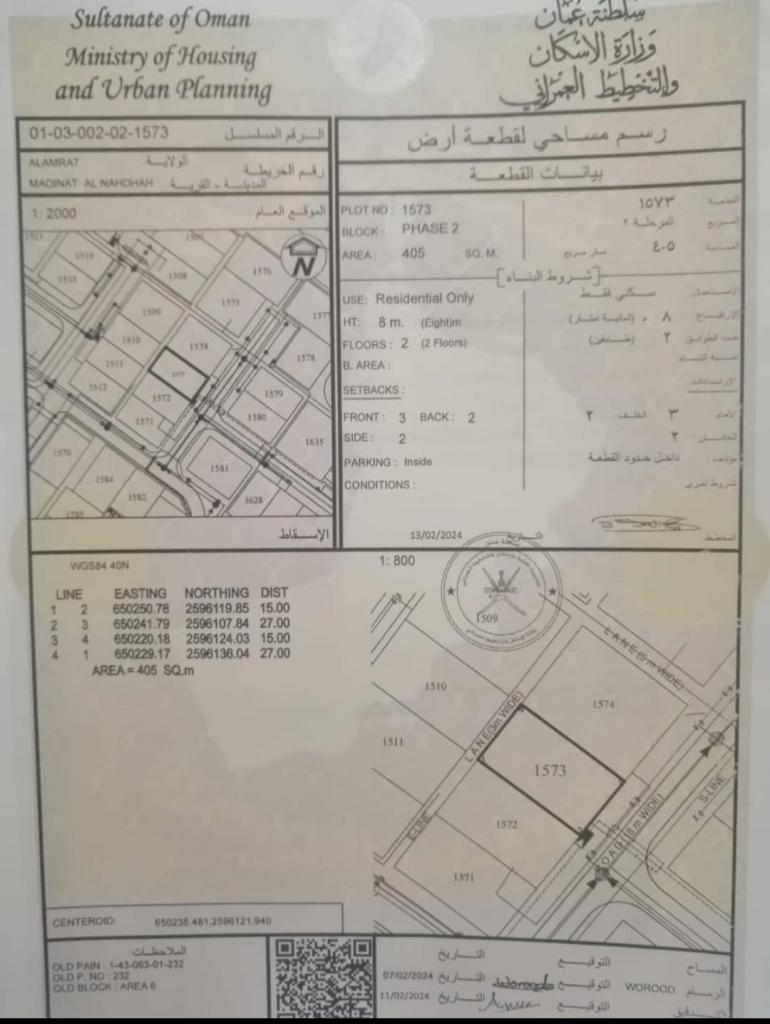 Sultanate of Oman
Ministry of Housing
and Urban Planning
سلطنة عمان
وزارة الإسكان
والتخطيط العمراني
01-03-002-02-1573 الرقم المسلسل
ALAMRAT الولاية
MADINAT AL NAHDHAH المدينة - القرية
رقم الخريطة
1: 2000 الموقع العام
رسم مساحي لقطعة أرض
بيانات القطعة
PLOT NO : 1573
١٥٧٣ القطعة
BLOCK : PHASE 2
المرحلة ٢ المربع
AREA : 405 SQ. M.
٤٠٥ متر مربع المساحة
شروط البناء
USE: Residential Only
سكني فقط الإستعمال
HT: 8 m. (Eight)m
٨ م (ثمانية امتار) الإرتفاع
FLOORS : 2 (2 Floors)
٢ (طابقين) عدد الطوابق
B. AREA :
نسبة البناء
SETBACKS :
الإرتدادات
FRONT : 3 BACK : 2
الأمام ٣ الخلف ٢
SIDE : 2
الجانبان ٢
PARKING : Inside
داخل حدود القطعة
CONDITIONS :
شروط أخرى
13/02/2024 التاريخ
المخطط
N
1508
1576
1515
1509
1575
1577
1510
1574
1511
1573
1578
1512
1572
1579
1571
1580
1570
1635
1584
1581
1582
1628
1585
الإسقاط
WGS84 40N
LINE EASTING NORTHING DIST
1 2 650250.78 2596119.85 15.00
2 3 650241.79 2596107.84 27.00
3 4 650220.18 2596124.03 15.00
4 1 650229.17 2596136.04 27.00
AREA = 405 SQ.m
1: 800
1509
LANE (5 m WIDE)
1510
1574
LANE(3m WIDE)
1511
1573
S-LINE
1572
E-LINE
ROAD (18 m WIDE)
1571
CENTEROID: 650235.481,2596121.940
الملاحظات
OLD PAIN : 1-43-063-01-232
OLD P. NO : 232
OLD BLOCK : AREA 6
التاريخ التوقيع المساح
07/02/2024 التاريخ Worood التوقيع WOROOD الرسام
11/02/2024 التاريخ التوقيع التدقيق